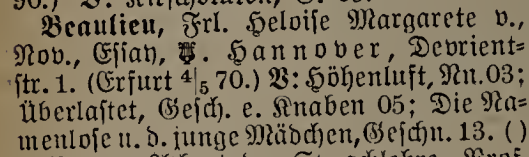 Beaulieu, Frl. Heloise Margarete v.,
Nov., Essay, W. Hannover, Devrient-
str. 1. (Erfurt 4/5 70.) V: Höhenluft, Rn. 03;
Überlastet, Gesch. e. Knaben 05; Die Na-
menlose u. d. junge Mädchen, Geschn. 13. ()